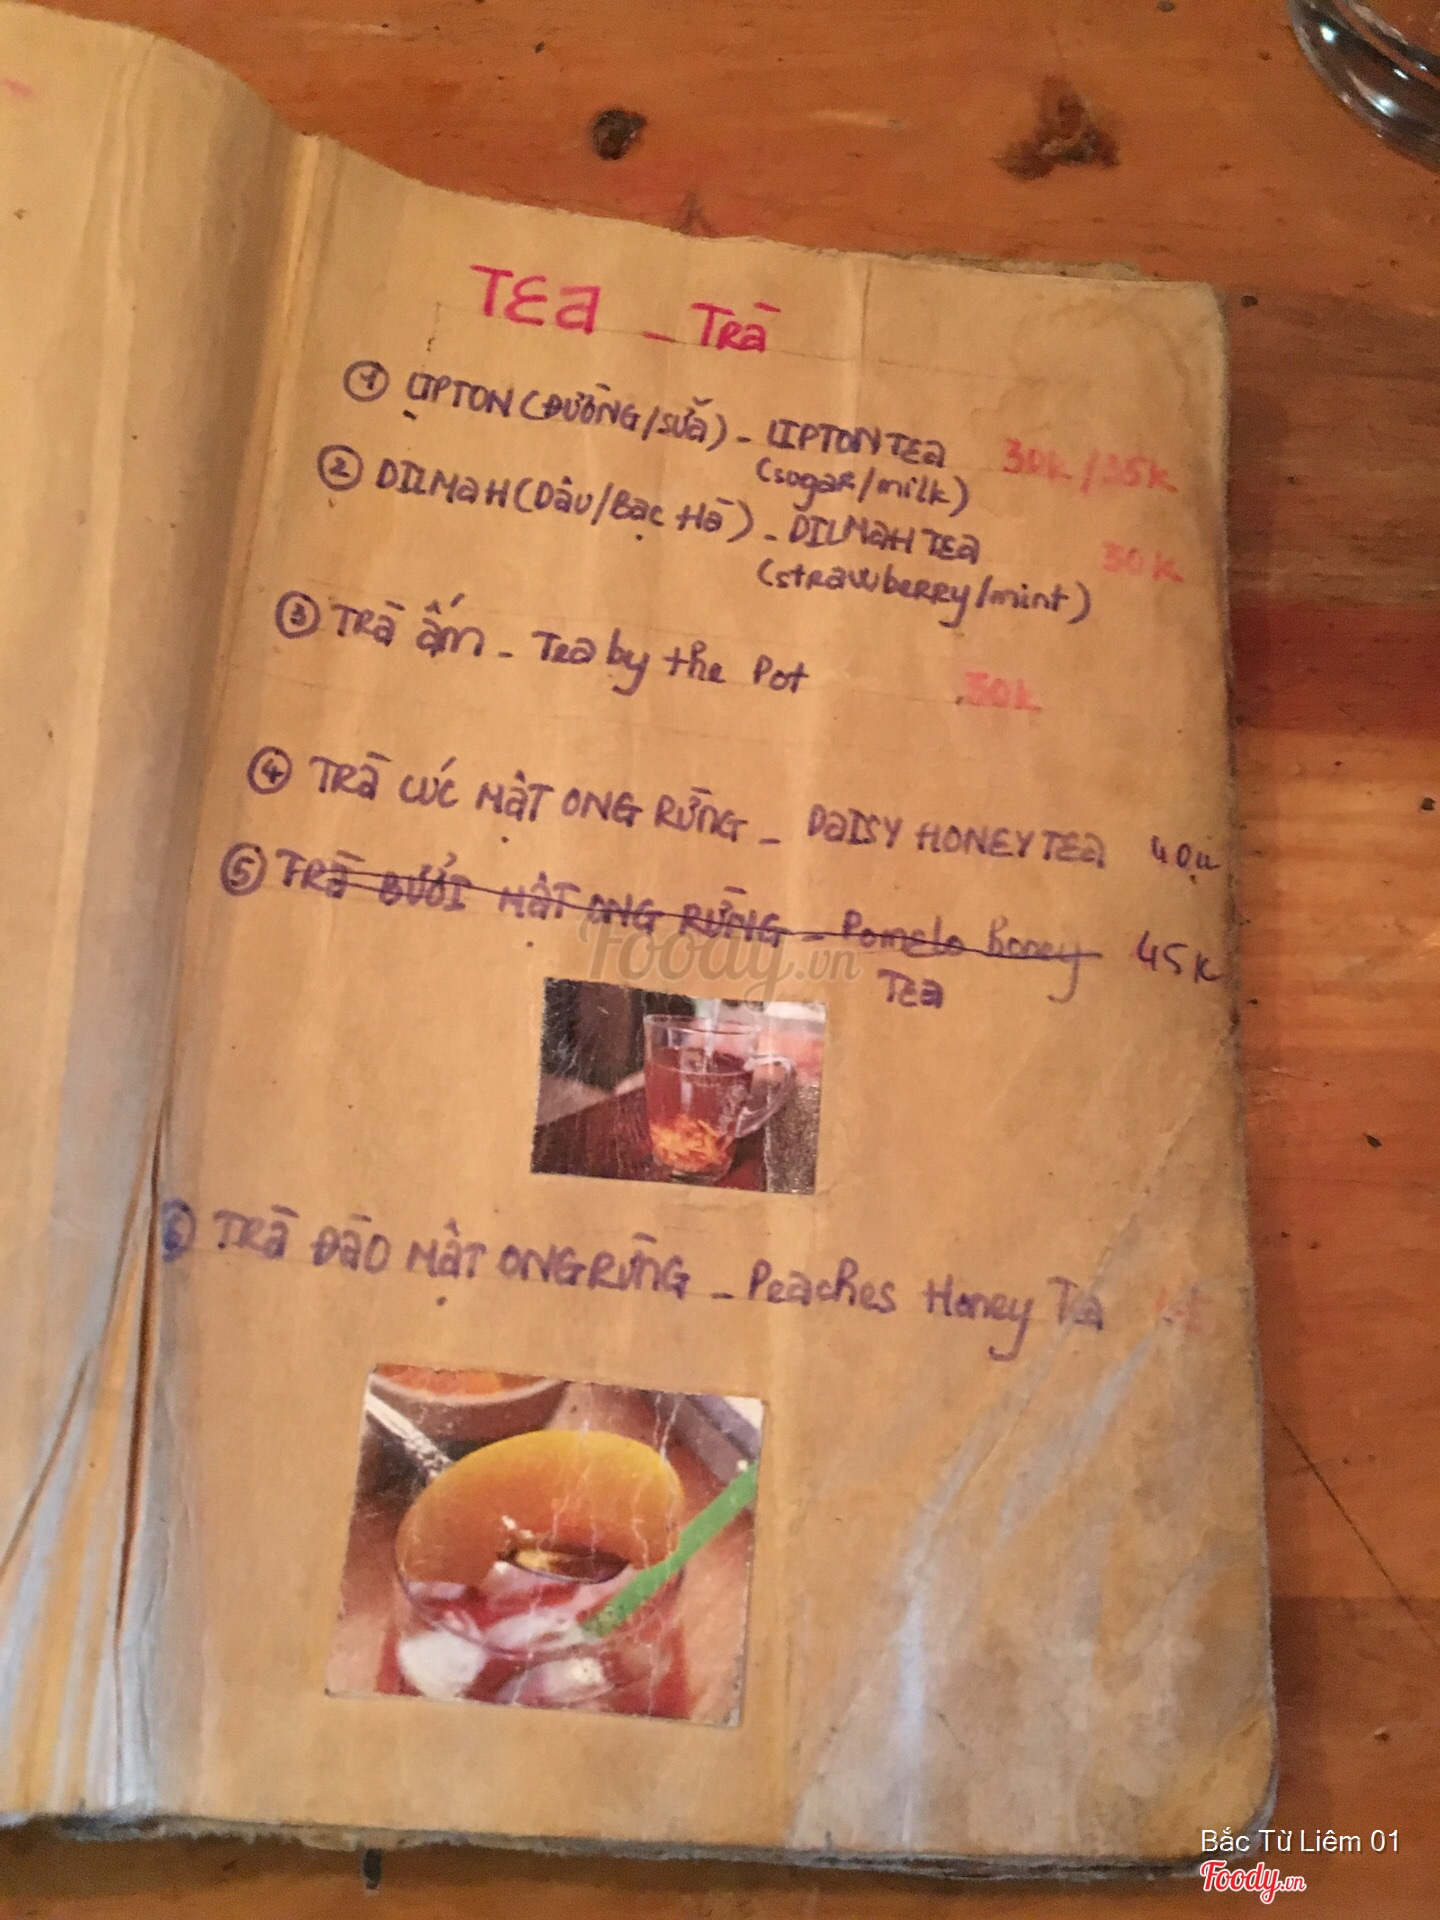 TEA - TRà
① LIPTON (ĐƯỜNG/SỮA) - LIPTON TEA 30K/35K
(sugar/milk)
② DILMAH (Dâu/Bạc Hà) - DILMAH TEA 30K
(strawberry/mint)
③ TRà ấm - Tea by the Pot 50K
④ TRà CÚC MẬT ONG RỪNG - DAISY HONEY TEA 40K
⑤ TRà BƯỞI MẬT ONG RỪNG - Pomelo honey 45K
TEA
Foody.vn
⑥ TRà ĐàO MẬT ONG RỪNG - Peaches Honey Tea
Bắc Từ Liêm 01
Foody.vn